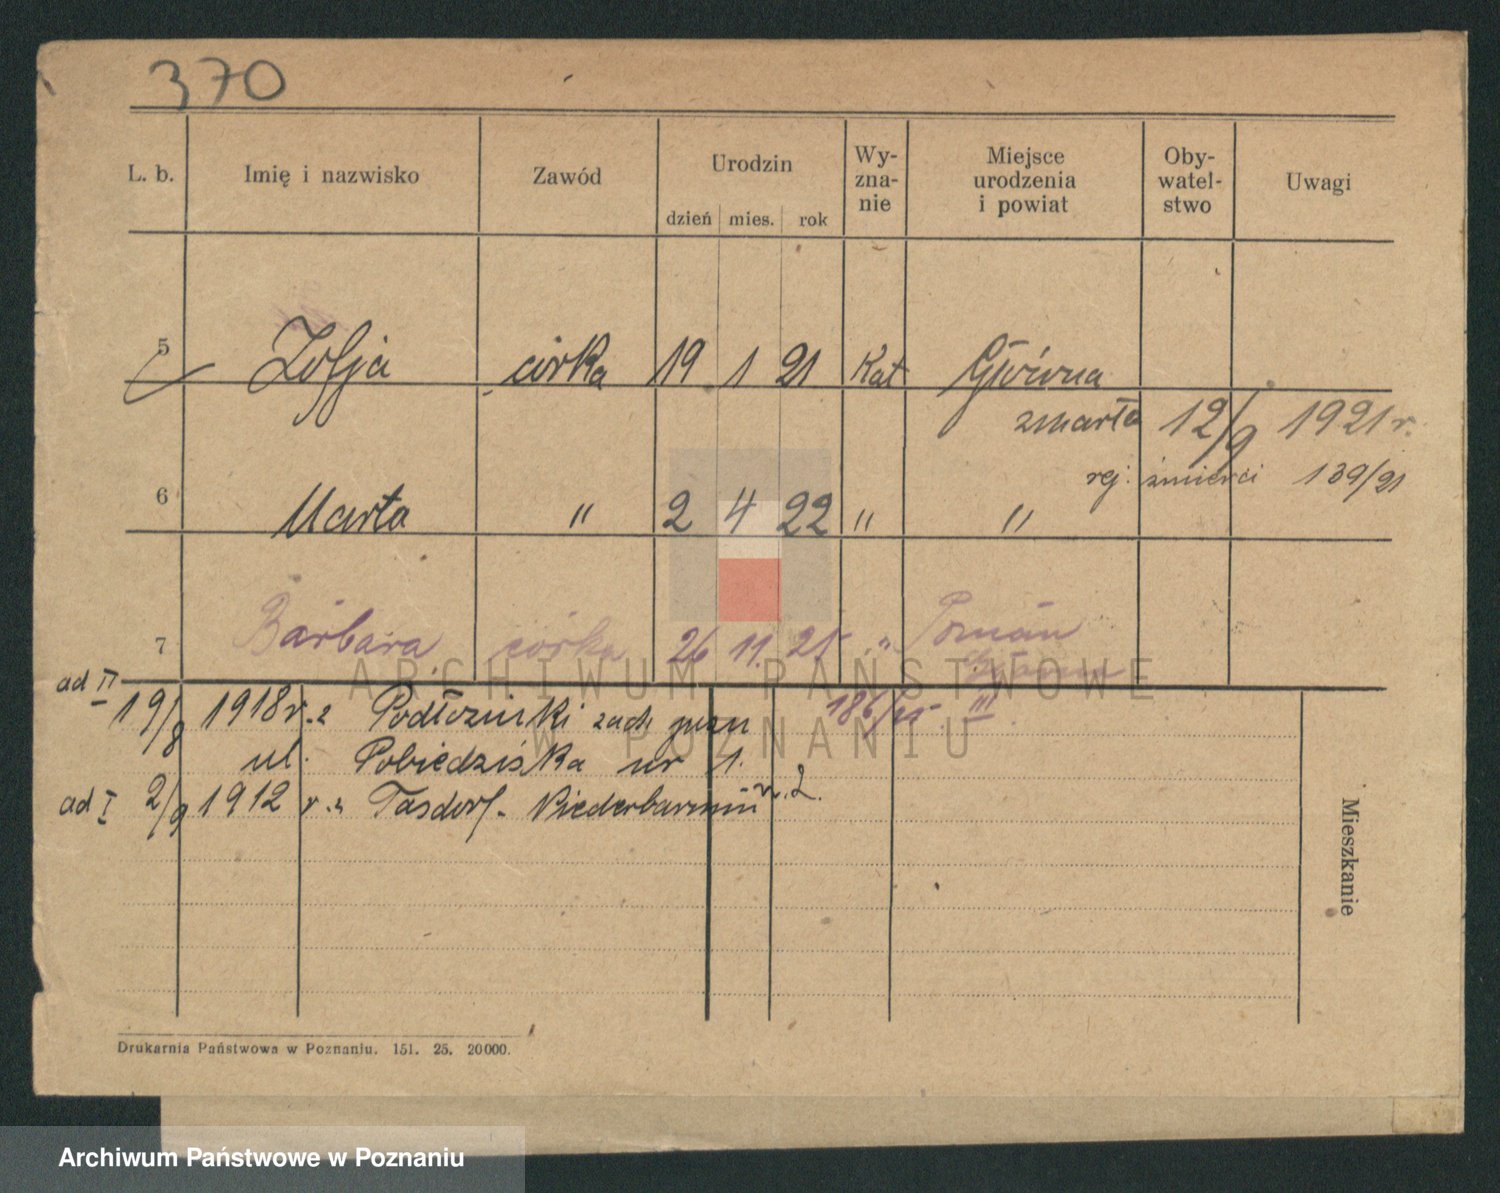 370
L. b. Imię i nazwisko Zawód Urodzin dzień mies. rok Wy-zna-nie Miejsce urodzenia i powiat Oby-watel-stwo Uwagi
5 Zofja córka 19 1 21 Kat Główna
zmarła 12/9 1921 r.
rej. śmierci 139/21
6 Marta " 2 4 22 " "
7 Barbara córka 26 11. 25 " Poznań
Główna
ad II 19/8 1918 r. z Podłoziński 186/25 III
ul. Pobiedziska nr 1.
ad I 2/9 1912 r. z Tasdorf - Niederbarnim n. 2.
Mieszkanie
Drukarnia Państwowa w Poznaniu. 151. 25. 20000.
ARCHIWUM PAŃSTWOWE
W POZNANIU
Archiwum Państwowe w Poznaniu